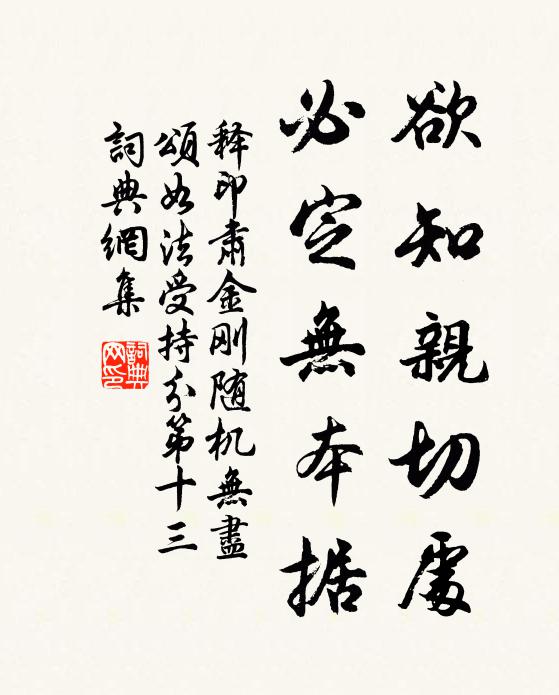 欲知親切處
必定無本據
释印肃金刚随机無盡
頌如法受持分第十三
詞典網集
詞典網印